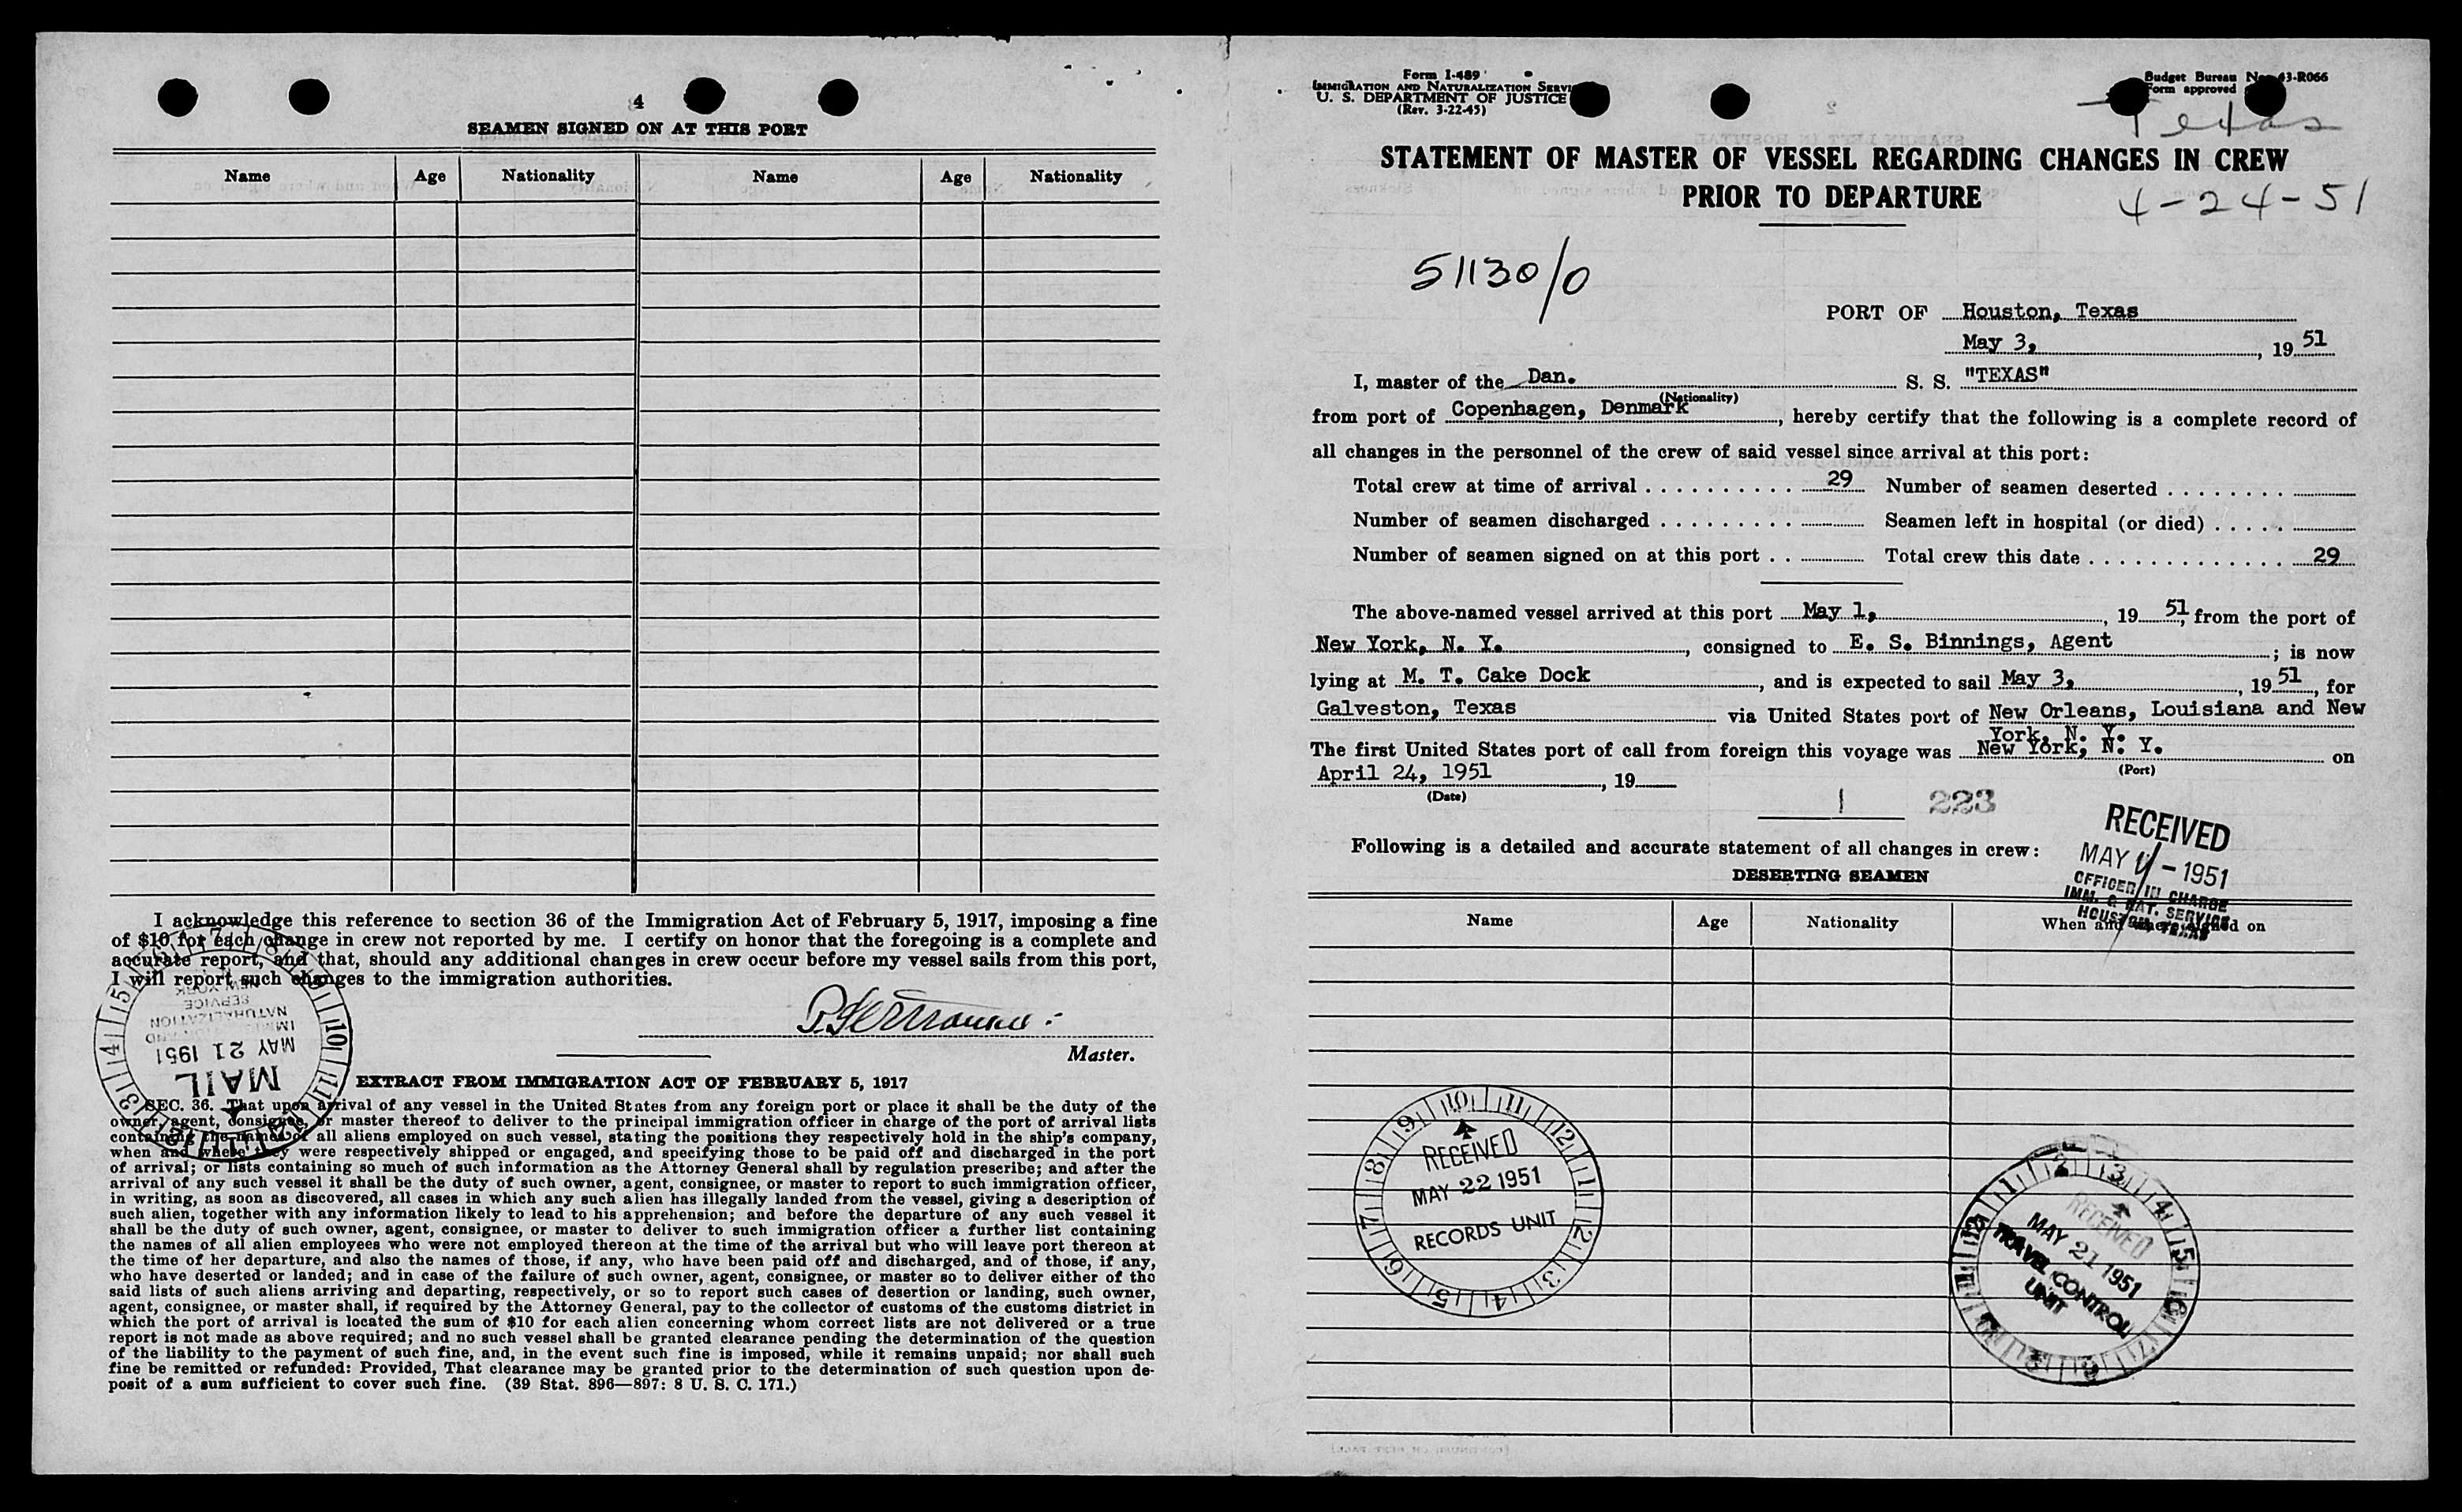 4
SEAMEN SIGNED ON AT THIS PORT
Name Age Nationality Name Age Nationality
I acknowledge this reference to section 36 of the Immigration Act of February 5, 1917, imposing a fine
of $10 for each change in crew not reported by me. I certify on honor that the foregoing is a complete and
accurate report, and that, should any additional changes in crew occur before my vessel sails from this port,
I will report such changes to the immigration authorities.
Master.
MAY 21 1951
MAIL
EXTRACT FROM IMMIGRATION ACT OF FEBRUARY 5, 1917
SEC. 36. That upon arrival of any vessel in the United States from any foreign port or place it shall be the duty of the
owner, agent, consignee, or master thereof to deliver to the principal immigration officer in charge of the port of arrival lists
containing the names of all aliens employed on such vessel, stating the positions they respectively hold in the ship's company,
when and where they were respectively shipped or engaged, and specifying those to be paid off and discharged in the port
of arrival; or lists containing so much of such information as the Attorney General shall by regulation prescribe; and after the
arrival of any such vessel it shall be the duty of such owner, agent, consignee, or master to report to such immigration officer,
in writing, as soon as discovered, all cases in which any such alien has illegally landed from the vessel, giving a description of
such alien, together with any information likely to lead to his apprehension; and before the departure of any such vessel it
shall be the duty of such owner, agent, consignee, or master to deliver to such immigration officer a further list containing
the names of all alien employees who were not employed thereon at the time of the arrival but who will leave port thereon at
the time of her departure, and also the names of those, if any, who have been paid off and discharged, and of those, if any,
who have deserted or landed; and in case of the failure of such owner, agent, consignee, or master so to deliver either of the
said lists of such aliens arriving and departing, respectively, or so to report such cases of desertion or landing, such owner,
agent, consignee, or master shall, if required by the Attorney General, pay to the collector of customs of the customs district in
which the port of arrival is located the sum of $10 for each alien concerning whom correct lists are not delivered or a true
report is not made as above required; and no such vessel shall be granted clearance pending the determination of the question
of the liability to the payment of such fine, and, in the event such fine is imposed, while it remains unpaid; nor shall such
fine be remitted or refunded: Provided, That clearance may be granted prior to the determination of such question upon de-
posit of a sum sufficient to cover such fine. (39 Stat. 896—897: 8 U. S. C. 171.)
Form I-489
IMMIGRATION AND NATURALIZATION
U. S. DEPARTMENT OF JUSTICE
(Rev. 3-22-45)
Budget Bureau 43-R066
Form approved
Texas
STATEMENT OF MASTER OF VESSEL REGARDING CHANGES IN CREW
PRIOR TO DEPARTURE
4-24-51
51130/0
PORT OF Houston, Texas
May 3, , 19 51
I, master of the Dan. S. S. "TEXAS"
(Nationality)
from port of Copenhagen, Denmark, hereby certify that the following is a complete record of
all changes in the personnel of the crew of said vessel since arrival at this port:
Total crew at time of arrival . . . . . . . . . . 29 Number of seamen deserted . . . . . . . .
Number of seamen discharged . . . . . . . . . Seamen left in hospital (or died) . . . . .
Number of seamen signed on at this port . . Total crew this date . . . . . . . . . . . . . 29
The above-named vessel arrived at this port May 1, , 19 51, from the port of
New York, N. Y. , consigned to E. S. Binnings, Agent ; is now
lying at M. T. Cake Dock , and is expected to sail May 3, , 19 51 , for
Galveston, Texas via United States port of New Orleans, Louisiana and New
York, N. Y.
The first United States port of call from foreign this voyage was New York, N. Y. on
(Port)
April 24, 1951 , 19
(Date)
1 223
RECEIVED
MAY 4 - 1951
OFFICER IN CHARGE
IMM. & NAT. SERVICE
HOUSTON, TEXAS
Following is a detailed and accurate statement of all changes in crew:
DESERTING SEAMEN
Name Age Nationality When and where signed on
RECEIVED
MAY 22 1951
RECORDS UNIT
RECEIVED
MAY 21 1951
TRAVEL CONTROL
UNIT